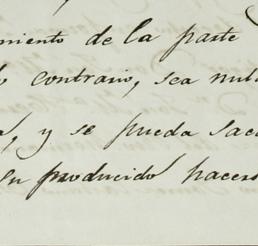 miento de la parte
contrario, sea nul
y se pueda sac
su producido hacers